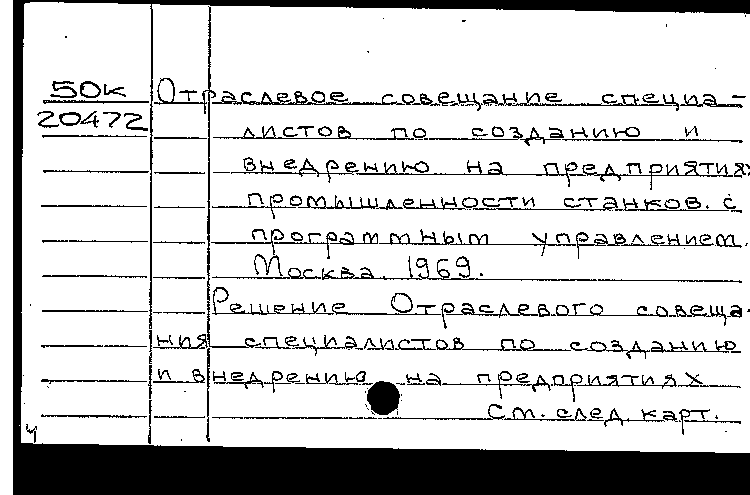 50к Отраслевое совещание специа-
20472 листов по созданию и
внедрению на предприятиях
промышленности станков. с
программным управлением.
Москва. 1969.
Решение Отраслевого совеща-
ния специалистов по созданию
и внедрению на предприятиях
См. след. карт.
ч